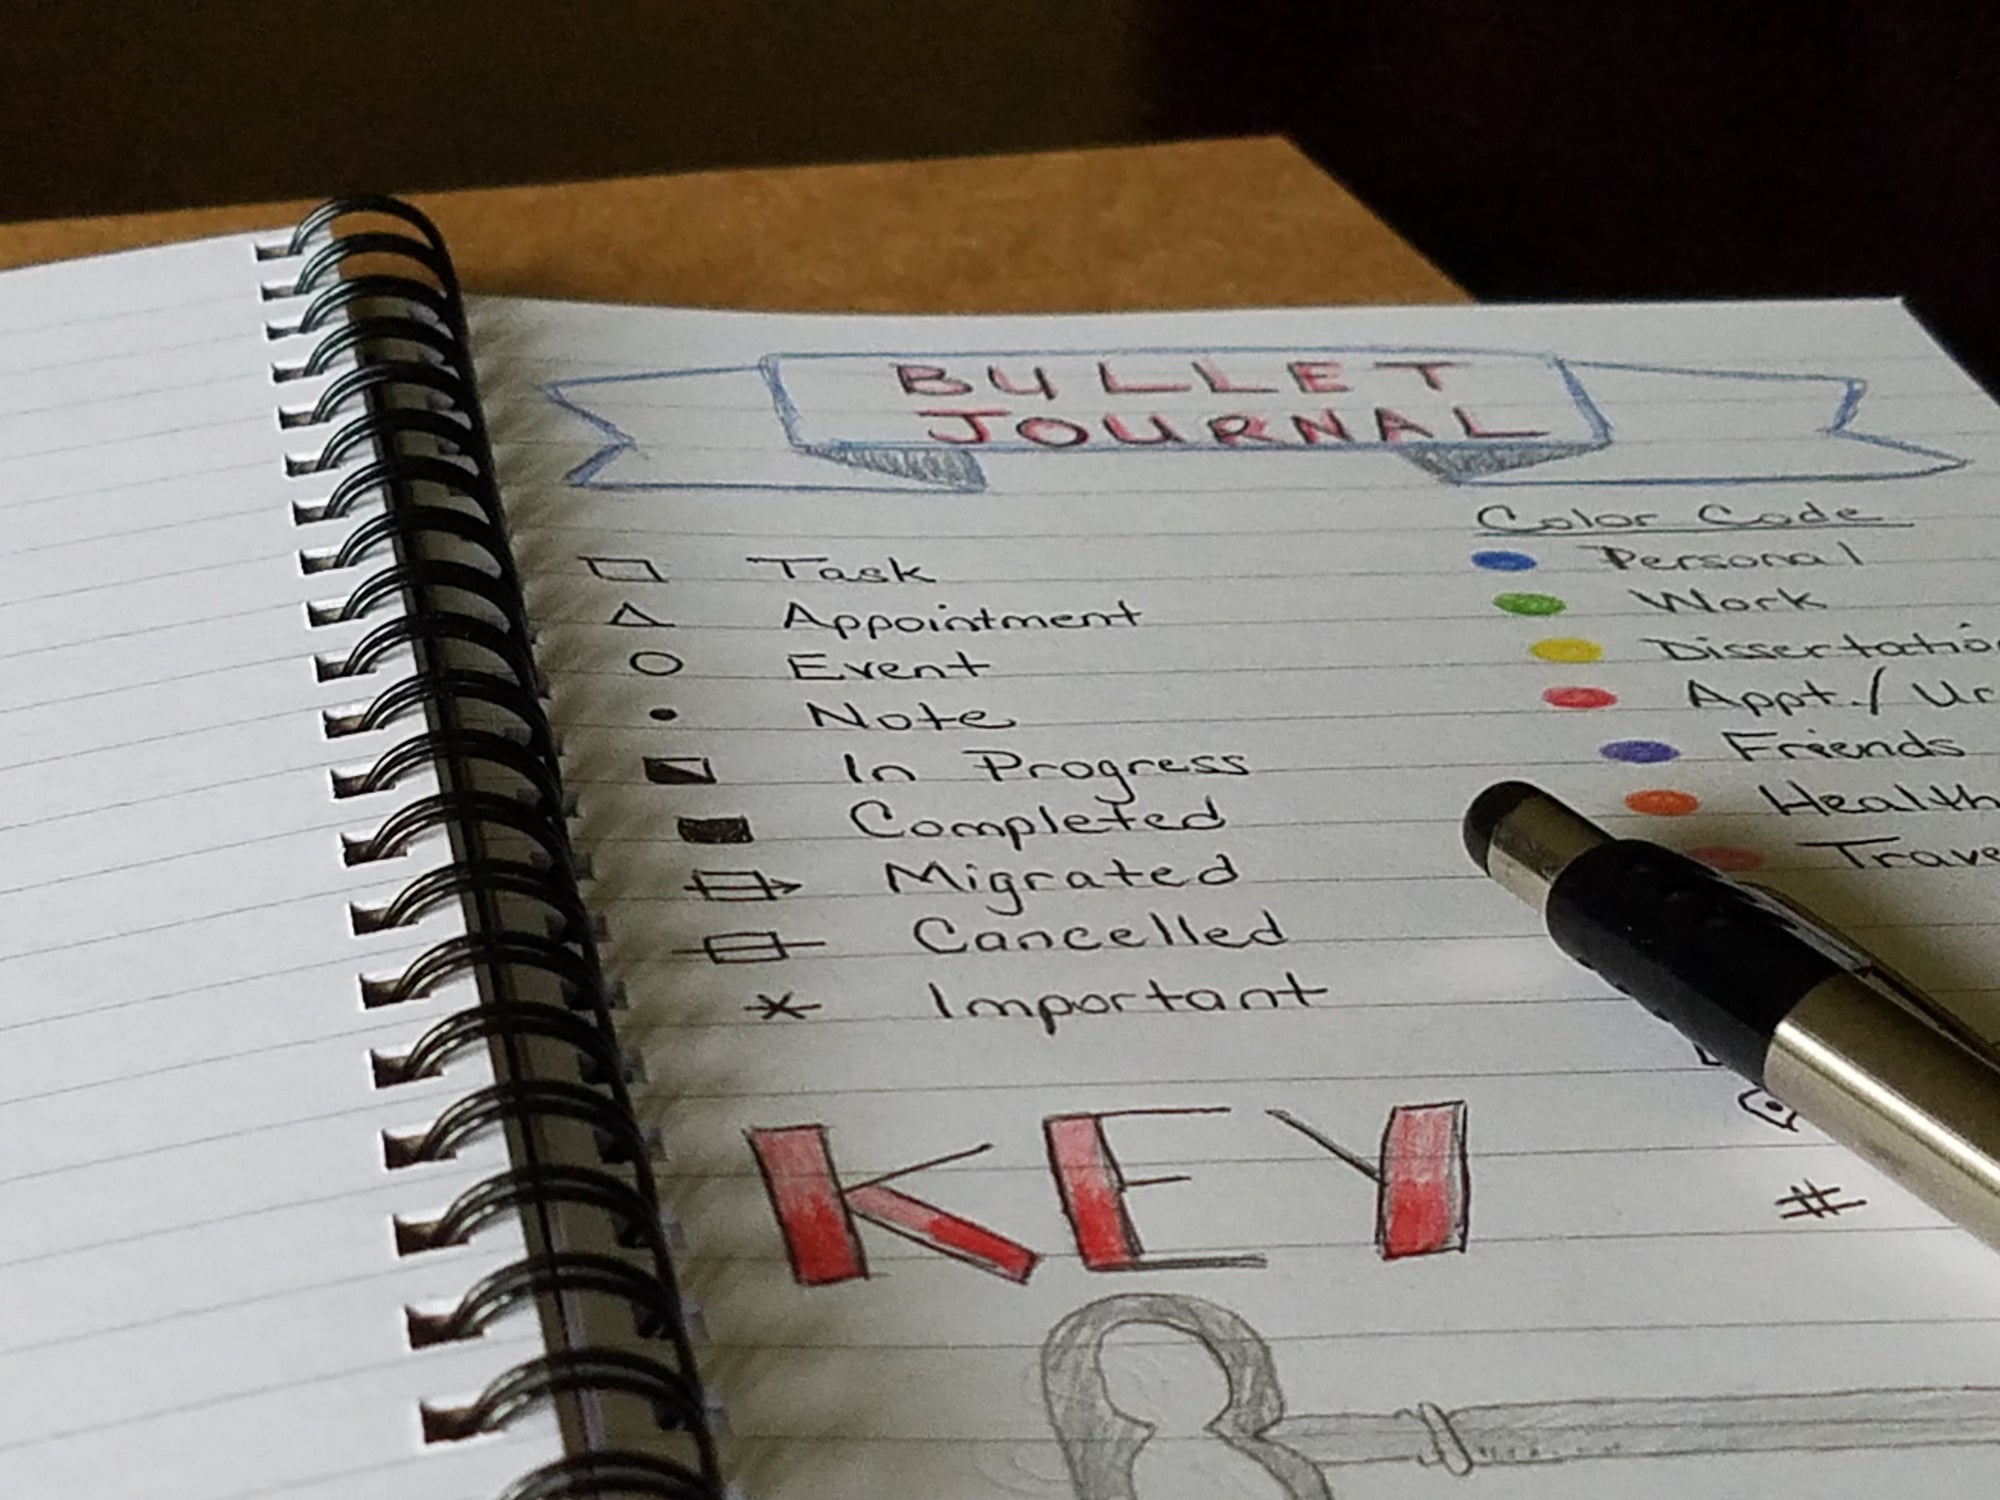 BULLET
JOURNAL
Task
Appointment
Event
Note
In Progress
Completed
Migrated
Cancelled
Important
Color Code
Personal
Work
Dissertatio
Appt./ Ur
Friends
Health
Trave
#
KEY